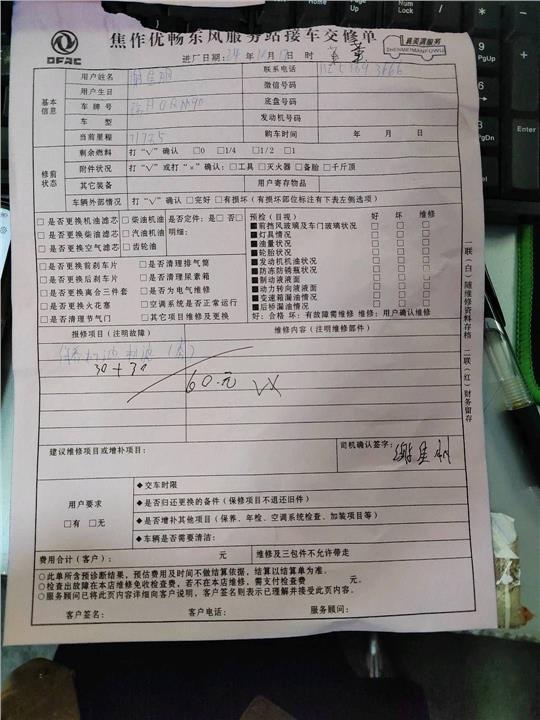 焦作优畅东风服务站接车交修单
DFAC
真美满服务
ZHENMEIMANFUWU
进厂日期: 年 月 日 时
基本信息
用户姓名 联系电话
用户生日 微信号码
车牌号 底盘号码
车型 发动机号码
当前里程 71725 购车时间 年 月 日
修前状态
剩余燃料 打“√”确认 □0 □1/4 □1/2 □1
附件状况 打“√”或打“×”确认:□工具 □灭火器 □备胎 □千斤顶
其它装备 用户寄存物品
车辆外部情况 打“√”确认 □完好 □有损坏(有损坏部位标注有下表左侧选项)
□是否更换机油滤芯 □柴油机油 是否定件:是□ 否□
□是否更换柴油滤芯 □汽油机油 明细:
□是否更换空气滤芯 □齿轮油
□是否更换前刹车片 □是否清理排气筒
□是否更换后刹车片 □是否清理尿素箱
□是否更换离合三件套 □是否为电气维修
□是否更换火花塞 □空调系统是否正常运行
□是否清理节气门 □其它项目维修及更换
预检(目视) 好 坏 维修
■前挡风玻璃及车门玻璃状况 □ □ □
■灯具情况 □ □ □
■油量状况 □ □ □
■轮胎状况 □ □ □
■发动机机油状况 □ □ □
■防冻防锈瓶状况 □ □ □
■制动液液面 □ □ □
■动力转向液液面 □ □ □
■变速箱漏油情况 □ □ □
■后桥漏油情况 □ □ □
好:合格 坏:有故障需维修 维修:用户确认维修
报修项目(注明故障) 维修内容(注明维修部件)
30+30
60.元
建议维修项目或增补项目: 司机确认签字:
用户要求
□有 □无
◆交车时限
◆是否归还更换的备件(保修项目不退还旧件)
◆是否增补其他项目(保养、年检、空调系统检查、加装项目等)
◆车辆是否需要清洁:
费用合计(客户): 元 维修及三包件不允许带走
○此单所含预诊断结果,预估费用及时间不做结算依据,结算以结算单为准。
○检查出故障在本店维修免收检查费,若不在本店维修,需支付检查费 元。
○服务顾问已将此页内容详细向客户说明,客户签名则表示已理解并接受此页内容。
客户签名: 客户电话: 服务顾问:
一联(白)随维修资料存档 二联(红)财务留存